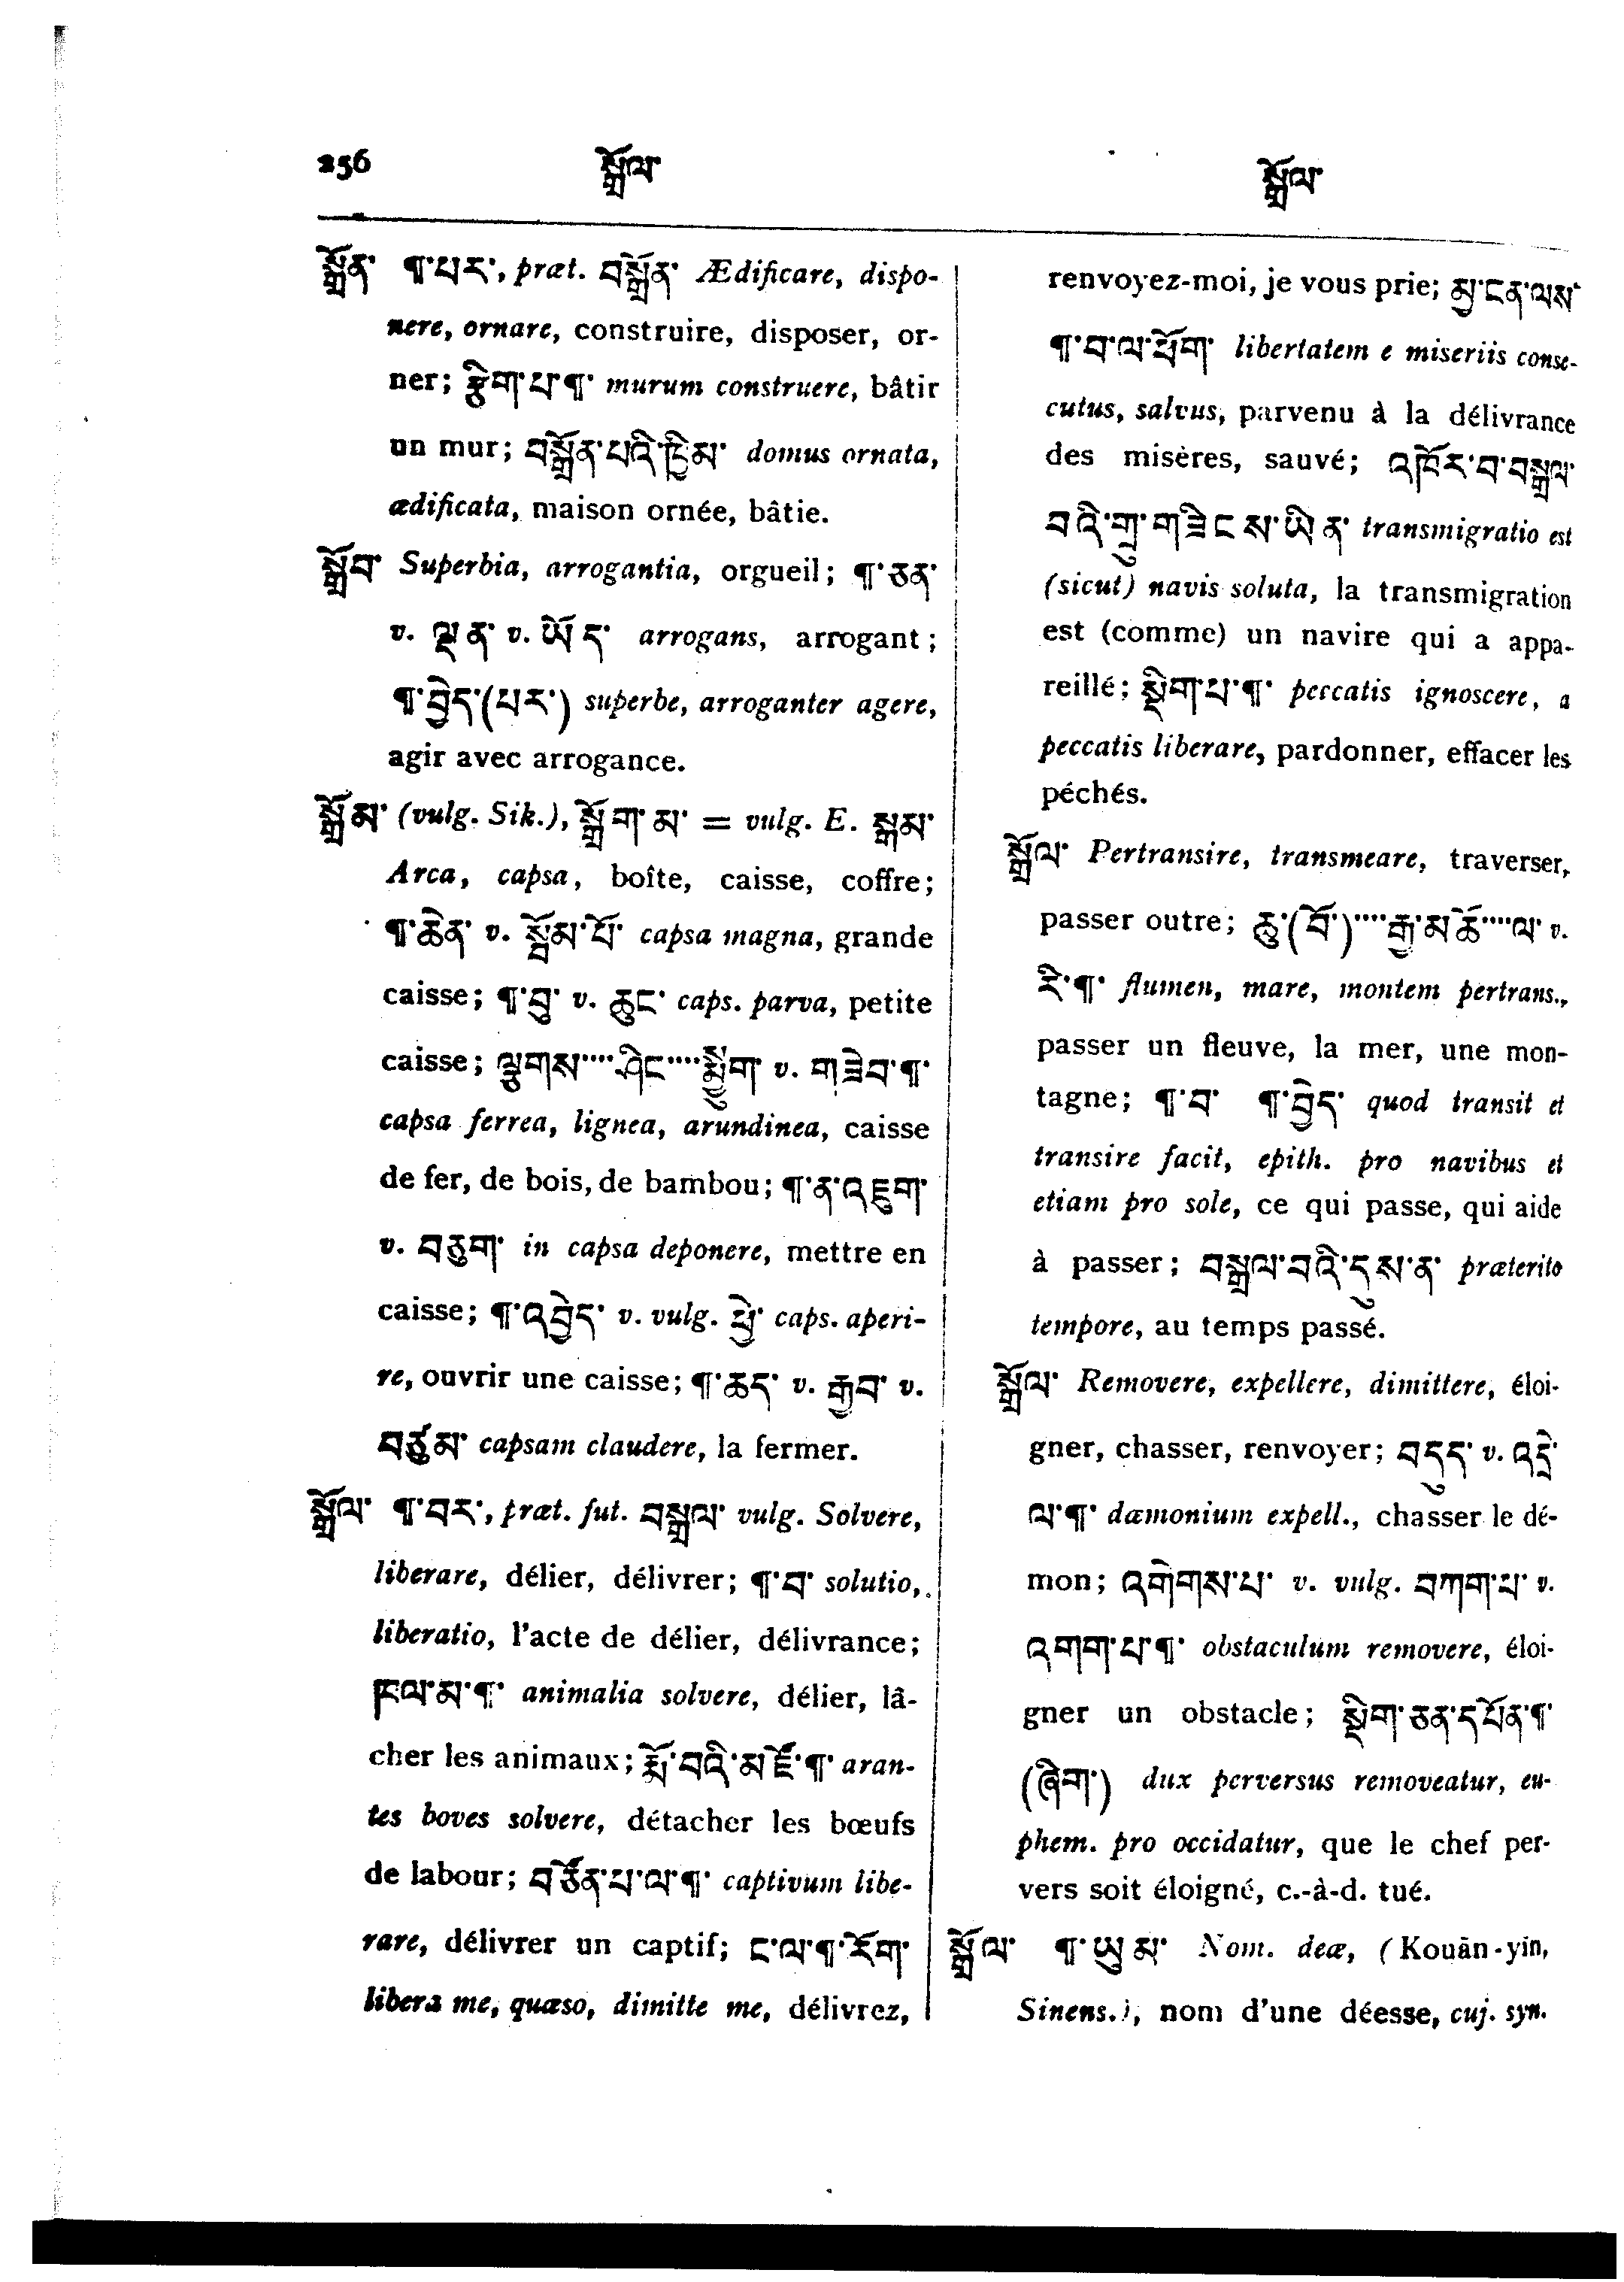 256 སྒྲོལ་ སྒྲོལ་
སྒྲོན་ ¶་པར་, præt. བསྒྲོན་ Ædificare, dispo-
nere, ornare, construire, disposer, or-
ner; རྩིག་པ་¶་ murum construere, bâtir
un mur; བསྒྲོན་པའི་ཁྱིམ་ domus ornata,
ædificata, maison ornée, bâtie.
སྒྲོབ་ Superbia, arrogantia, orgueil; ¶་ཅན་
v. ལྡན་ v. ཡོད་ arrogans, arrogant;
¶་བྱེད་(པར་) superbe, arroganter agere,
agir avec arrogance.
སྒྲོམ་ (vulg. Sik.), སྒྲོག་མ་ = vulg. E. སྒམ་
Arca, capsa, boîte, caisse, coffre;
¶་ཆེན་ v. སྦོམ་པོ་ capsa magna, grande
caisse; ¶་བུ་ v. ཆུང་ caps. parva, petite
caisse; ལྕགས་····ཤིང་····སྨྱིག་ v. གཟེབ་¶་
capsa ferrea, lignea, arundinea, caisse
de fer, de bois, de bambou; ¶་ན་འཇུག་
v. བཅུག་ in capsa deponere, mettre en
caisse; ¶་འབྱེད་ v. vulg. ཕྱེ་ caps. aperi-
re, ouvrir une caisse; ¶་ཆད་ v. རྒྱབ་ v.
བཙུམ་ capsam claudere, la fermer.
སྒྲོལ་ ¶་བར་, præt. fut. བསྒྲལ་ vulg. Solvere,
liberare, délier, délivrer; ¶་བ་ solutio,
liberatio, l'acte de délier, délivrance;
ཁལ་མ་¶་ animalia solvere, délier, lâ-
cher les animaux; རྨོ་བའི་མཛོ་¶་ aran-
tes boves solvere, détacher les bœufs
de labour; བཙོན་པ་ལ་¶་ captivum libe-
rare, délivrer un captif; ང་ལ་¶་རོག་
libera me, quæso, dimitte me, délivrez,
renvoyez-moi, je vous prie; མྱ་ངན་ལས་
¶་བ་ལ་ཕྲོག་ libertatem e miseriis conse-
cutus, salvus, parvenu à la délivrance
des misères, sauvé; འཁོར་བ་བསྒྲལ་
བའི་གྲུ་གཟིངས་ཡིན་ transmigratio est
(sicut) navis soluta, la transmigration
est (comme) un navire qui a appa-
reillé; སྡིག་པ་¶་ peccatis ignoscere, a
peccatis liberare, pardonner, effacer les
péchés.
སྒྲོལ་ Pertransire, transmeare, traverser,
passer outre; ཆུ་(བོ་)····རྒྱ་མཚོ་····ལ་ v.
རི་¶་ flumen, mare, montem pertrans.,
passer un fleuve, la mer, une mon-
tagne; ¶་བ་ ¶་བྱེད་ quod transit et
transire facit, epith. pro navibus et
etiam pro sole, ce qui passe, qui aide
à passer; བསྒྲལ་བའི་དུས་ན་ præterito
tempore, au temps passé.
སྒྲོལ་ Removere, expellere, dimittere, éloi-
gner, chasser, renvoyer; བདུད་ v. འདྲེ་
ལ་¶་ dæmonium expell., chasser le dé-
mon; འགེགས་པ་ v. vulg. བཀག་པ་ v.
འགག་པ་¶་ obstaculum removere, éloi-
gner un obstacle; སྡིག་ཅན་དཔོན་¶་
(ཞིག་) dux perversus removeatur, eu-
phem. pro occidatur, que le chef per-
vers soit éloigné, c.-à-d. tué.
སྒྲོལ་ ¶་ཡུམ་ Nom. deæ, (Kouān-yin,
Sinens.), nom d'une déesse, cuj. syn.